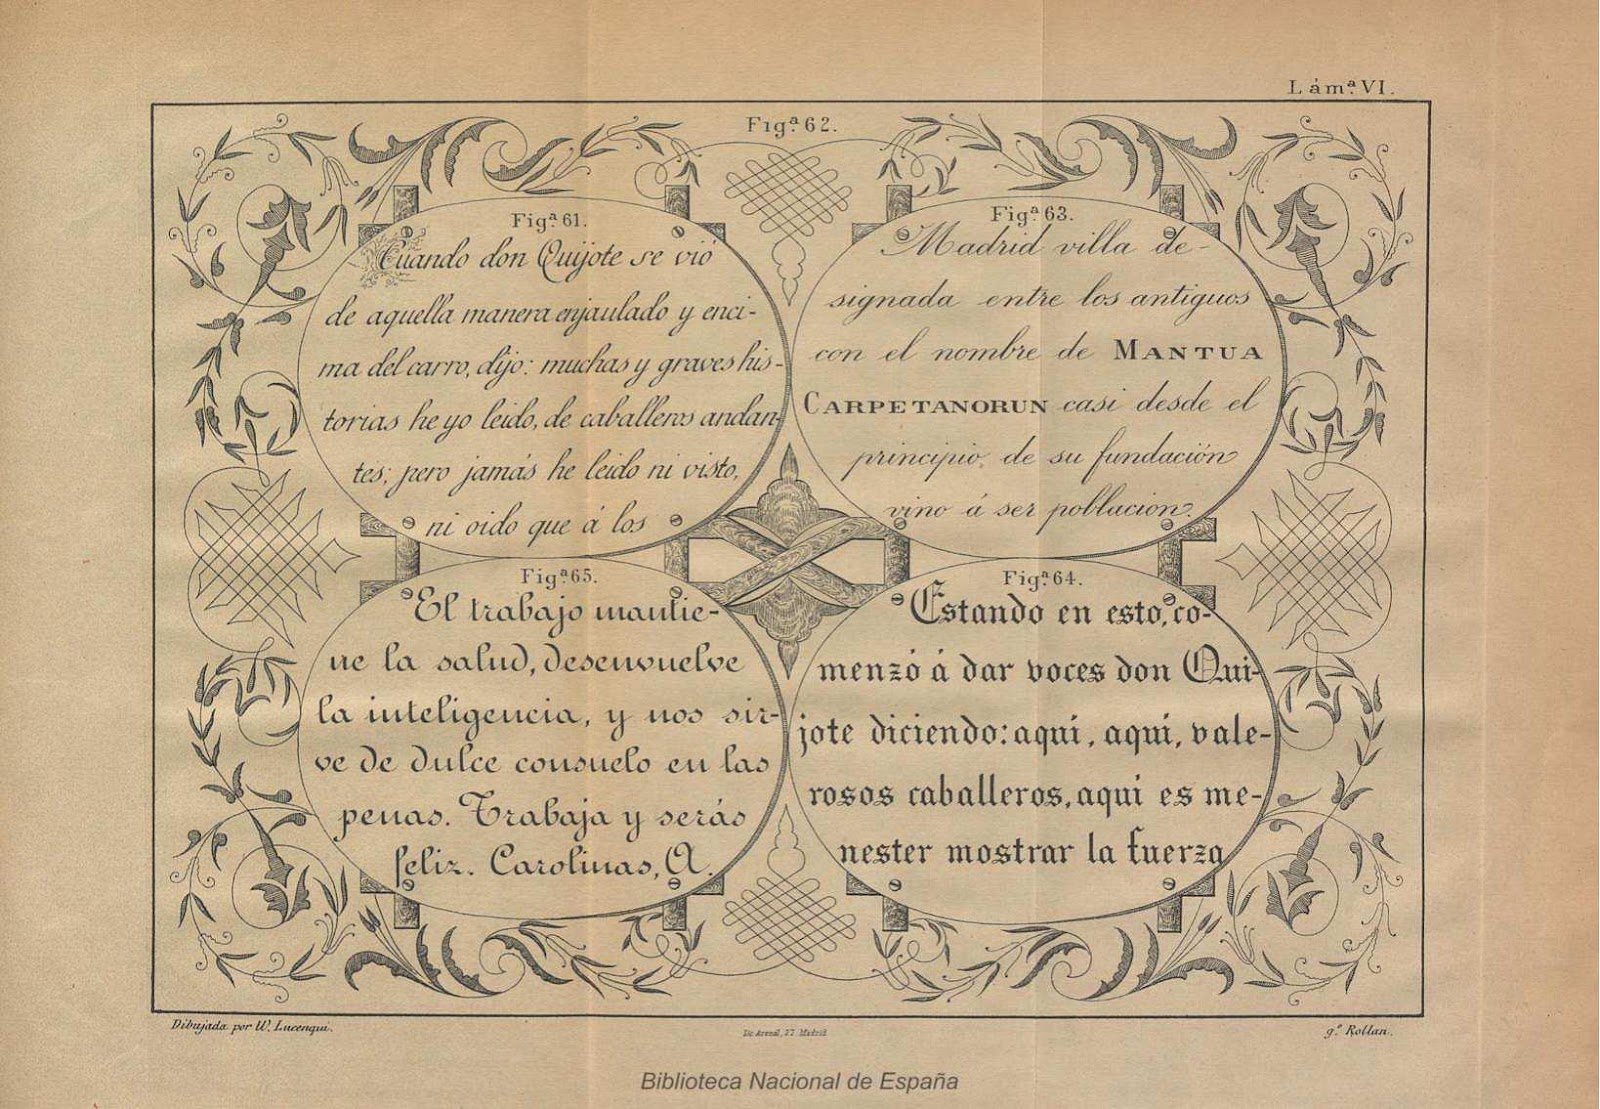 Lámª. VI.
Figª. 62.
Figª. 61.
Cuando don Quijote se vió
de aquella manera enjaulado y enci-
ma del carro, dijo: muchas y graves his-
torias he yo leido, de caballeros andan-
tes; pero jamás he leido ni visto,
ni oido que á los
Figª. 63.
Madrid villa de-
signada entre los antiguos
con el nombre de MANTUA
CARPETANORUN casi desde el
principio, de su fundación
vino á ser población.
Figª. 65.
El trabajo mantie-
ne la salud, desenvuelve
la inteligencia, y nos sir-
ve de dulce consuelo en las
penas. Trabaja y serás
feliz. Carolinas, A.
Figª. 64.
Estando en esto, co-
menzó á dar voces don Qui-
jote diciendo: aquí, aquí, vale-
rosos caballeros, aqui es me-
nester mostrar la fuerza
Dibujada por W. Lucenqui.
Lit. Arenal, 27 Madrid
g.º Rollan.
Biblioteca Nacional de España